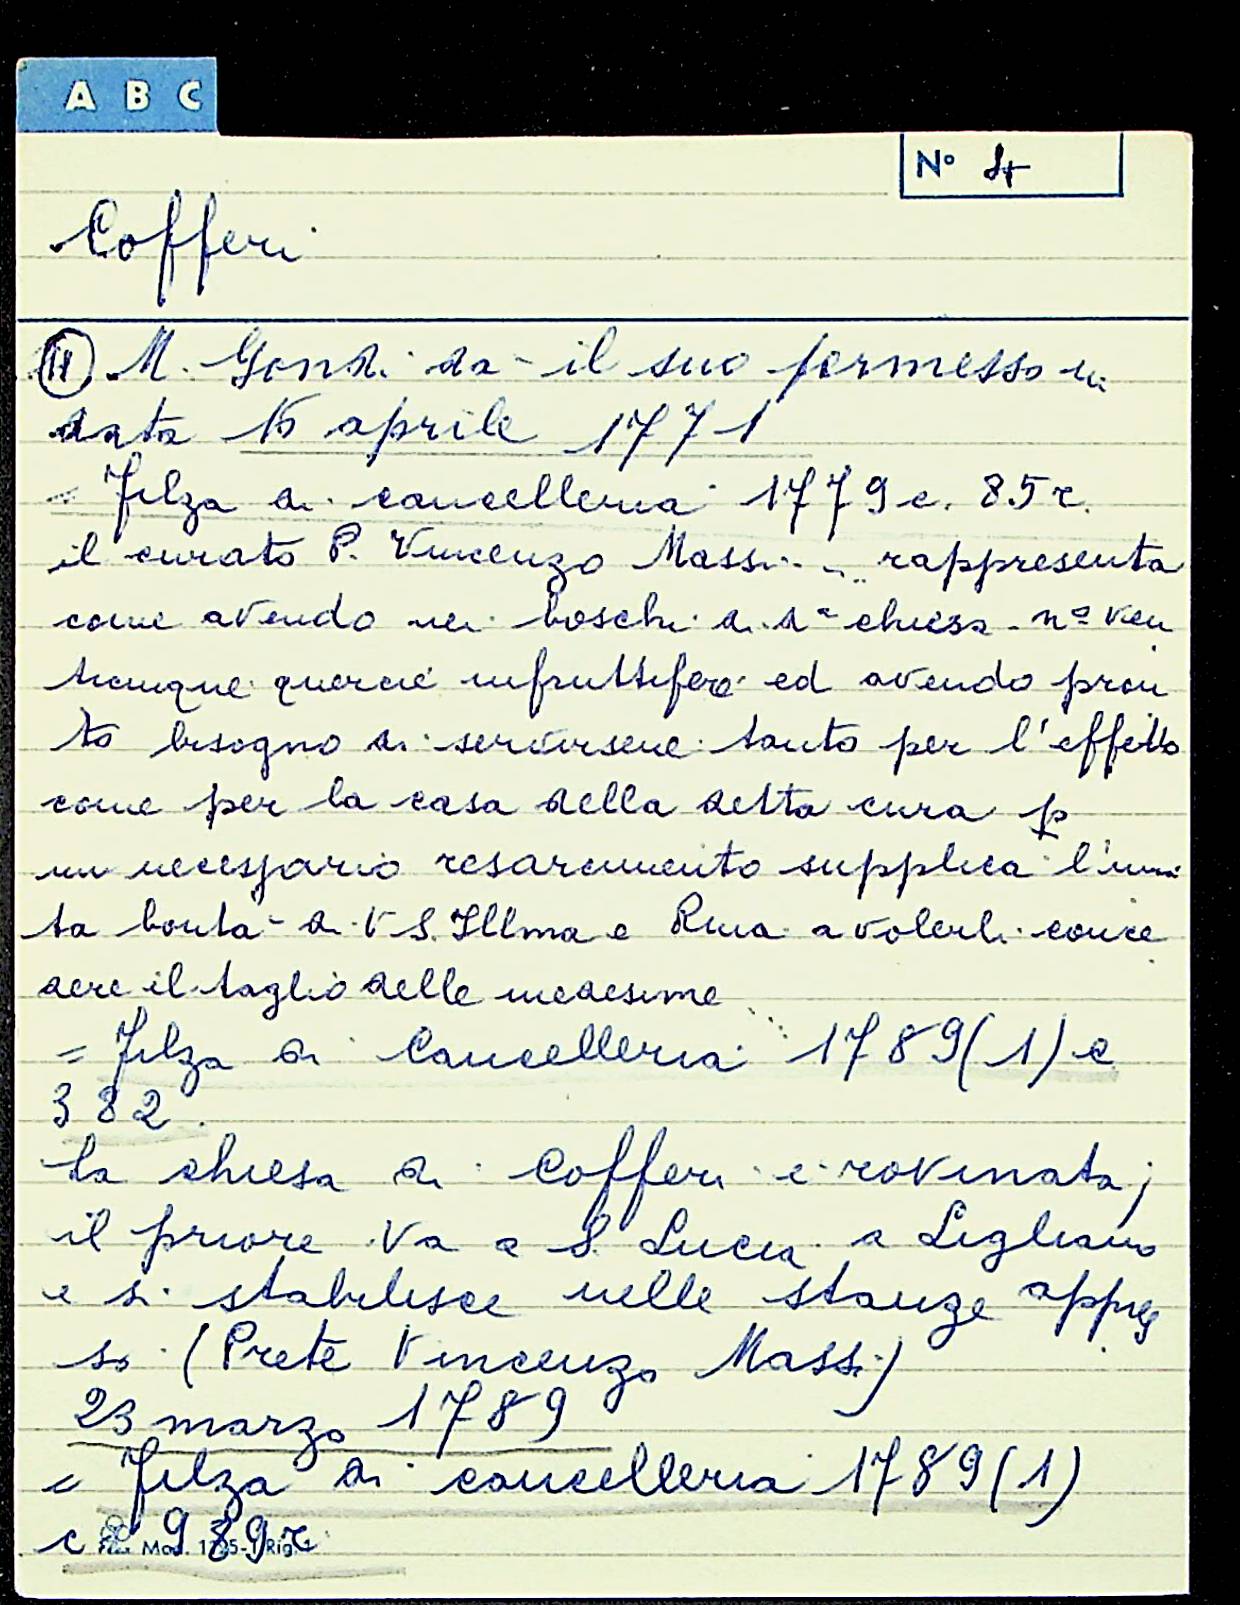 A B C
Nº 4
Cofferi
M. Gondi dà il suo permesso in
data 16 aprile 1771
= Filza di cancelleria 1779 c. 85 r.
il curato P. Vincenzo Massi ... rappresenta
come avendo nei boschi di dª chiesa nº ven
ticinque quercie infruttifere ed avendo pron
to bisogno di servirsene tanto per l'effetto
come per la casa della detta cura p
un necessario resarcimento supplica l'inna
ta bontà di V S. Illma e Rma a volerli conce
dere il taglio delle medesime
= Filza di Cancelleria 1789 (1) c
382.
la chiesa di Cofferi è rovinata;
il priore va a S. Lucia a Ligliano
e si stabilisce nelle stanze appres
so (Prete Vincenzo Massi)
23 marzo 1789
= Filza di cancelleria 1789 (1)
c 989 r